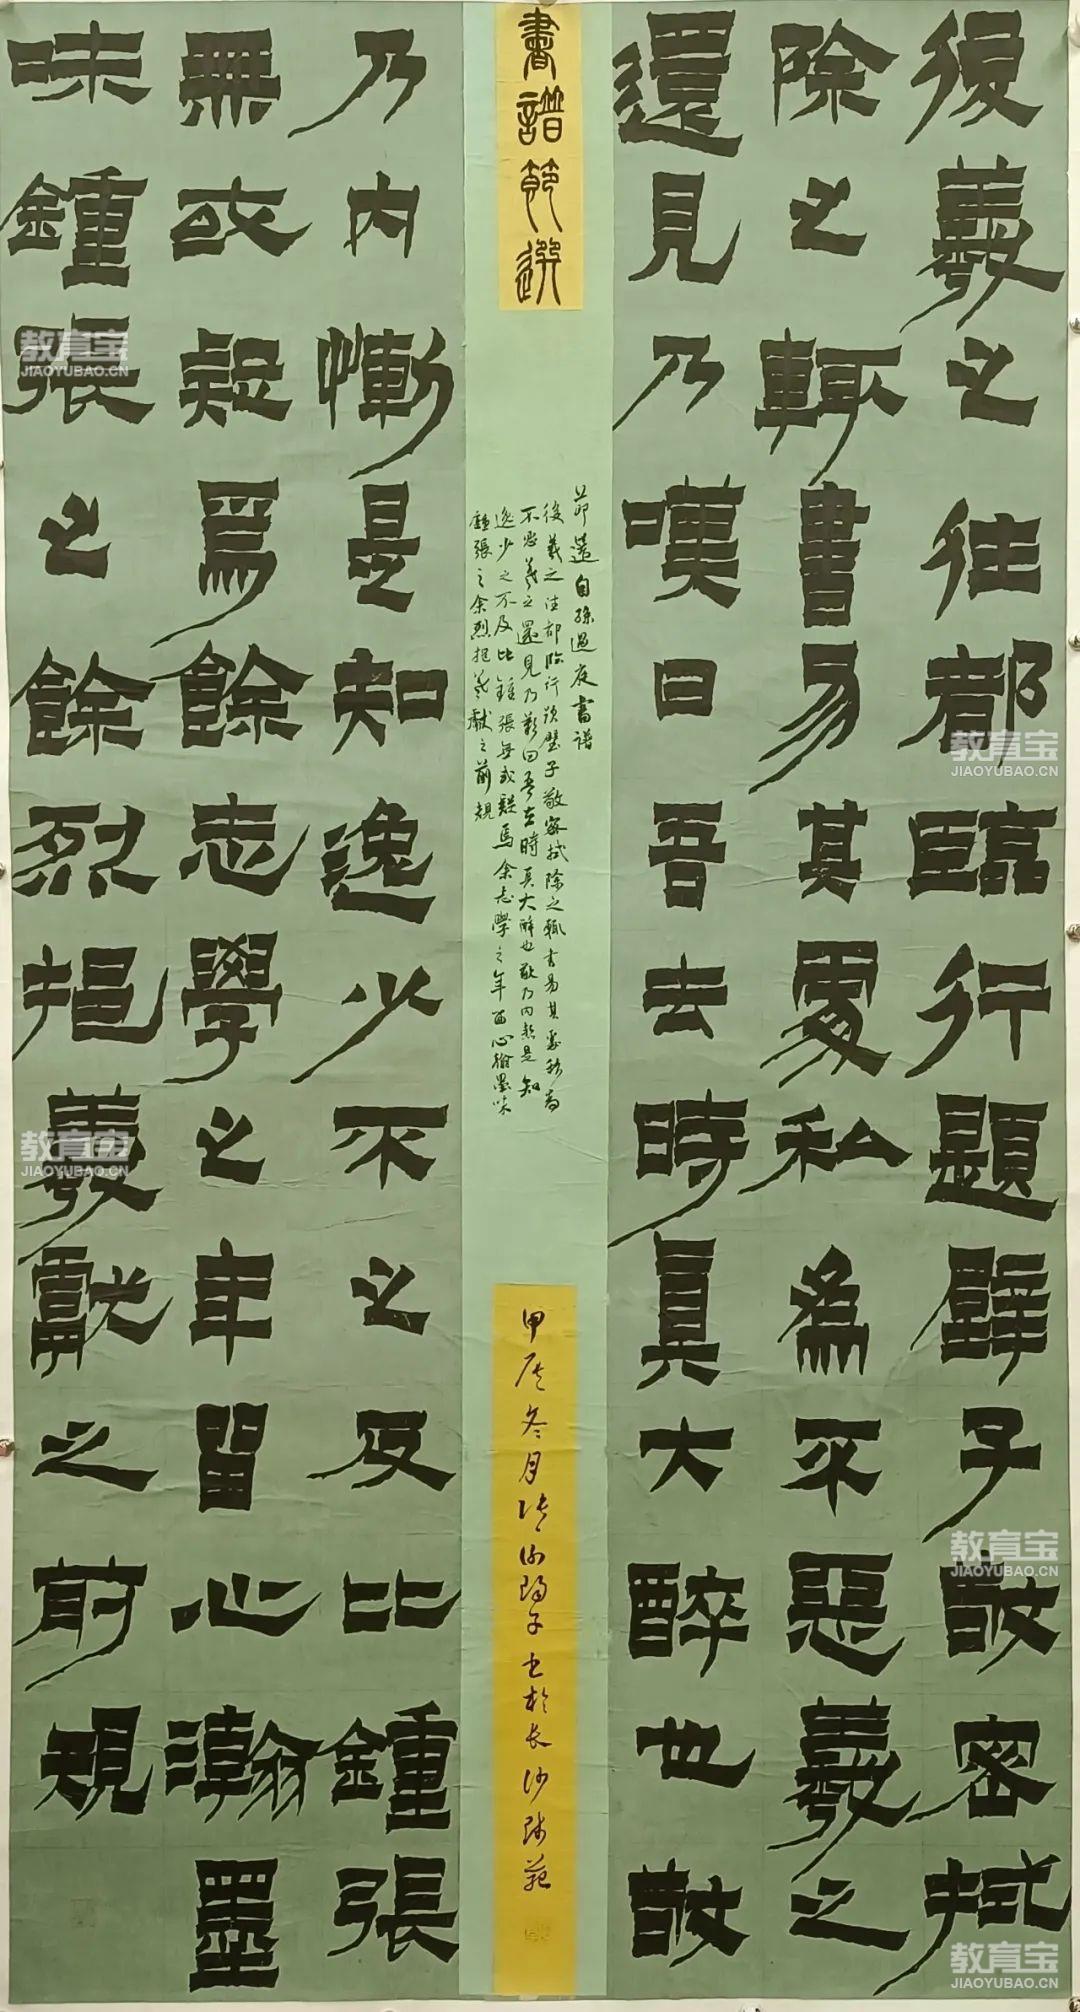 後羲之往都臨行題壁子敬密拭
除之輒書易其處私為不惡羲之
還見乃嘆曰吾去時真大醉也敬
書譜節選
節選自孫過庭書譜
後羲之往都臨行題壁子敬密拭除之輒書易其處私為
不惡羲之還見乃歎曰吾去時真大醉也敬乃內慙是知
逸少之不及比鍾張無或疑焉余志學之年留心翰墨味
鍾張之余烈挹羲獻之前規
甲辰冬月 子書於長沙
乃內慚是知逸少不之及比鍾張
無或疑焉餘志學之年留心瀚墨
味鍾張之餘烈挹羲獻之前規
教育宝
JIAOYUBAO.CN
教育宝
JIAOYUBAO.CN
教育宝
JIAOYUBAO.CN
教育宝
JIAOYUBAO.CN
教育宝
JIAOYUBAO.CN